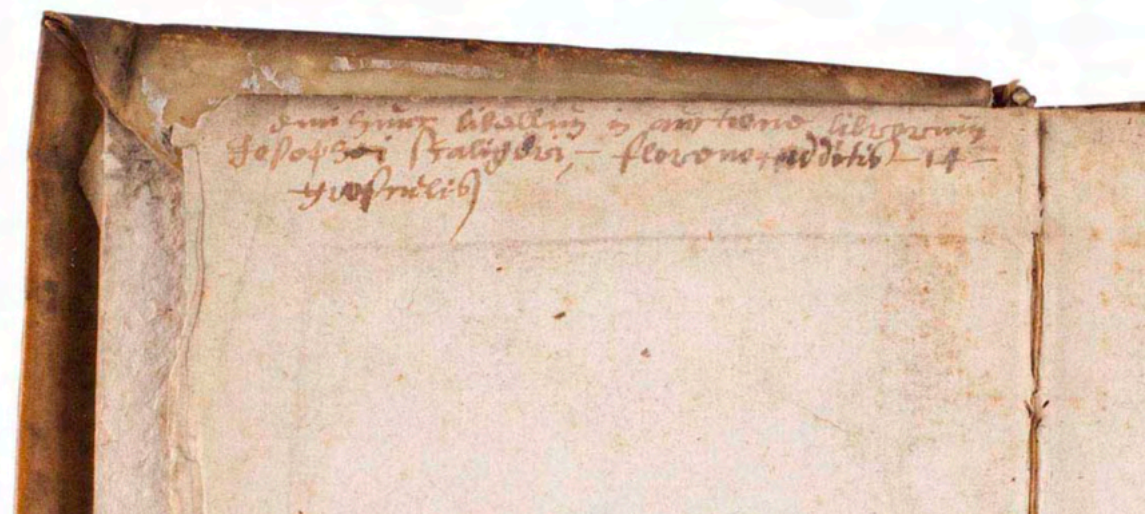 Emi hunc libellum in auctione librorum
Josephi Scaligeri, – floreno, additis – 14 –
grossulis